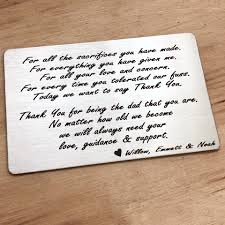 For all the sacrifices you have made.
For everything you have given me.
For all your love and concern.
For every time you tolerated our fuss.
Today we want to say Thank You.
Thank You for being the dad that you are.
No matter how old we become
we will always need your
love, guidance & support.
♥ Willow, Emmett & Noah